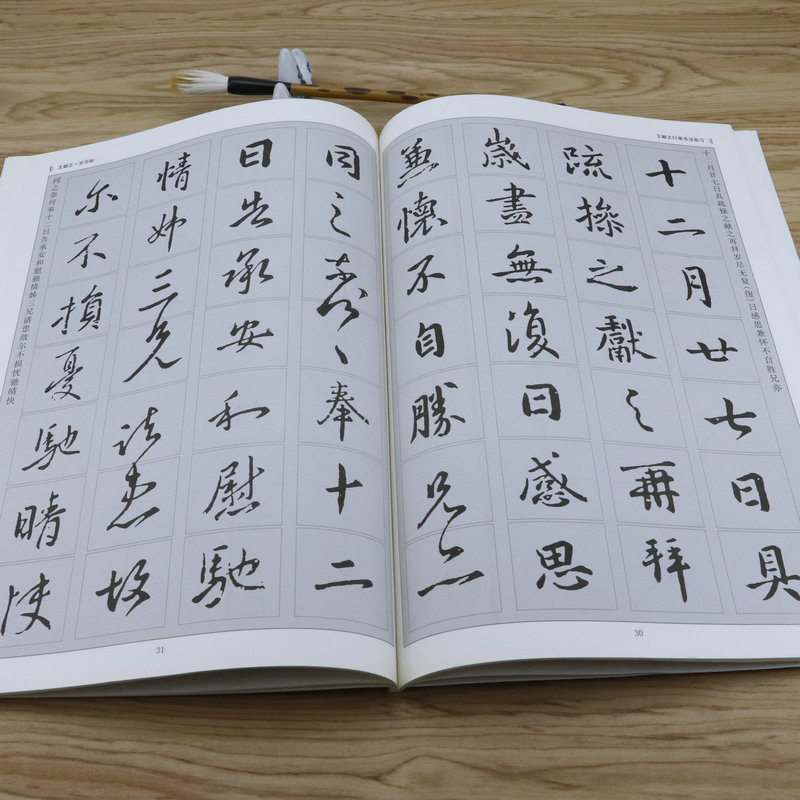 王献之行草书法练习
十二月廿七日具疏操之献之再拜岁尽无复(復)日感思兼怀不自胜兄亦
十二月廿七日具
疏操之獻之再拜
歲盡無復日感思
兼懷不自勝兄亦
30
同之奈何奉十二
日告承安和慰馳
情姊三兄諸患故
尔不損憂馳晴快
同之奈何奉十二日告承安和慰驰情姊三兄诸患故尔不损忧驰晴快
王献之·岁尽帖
31